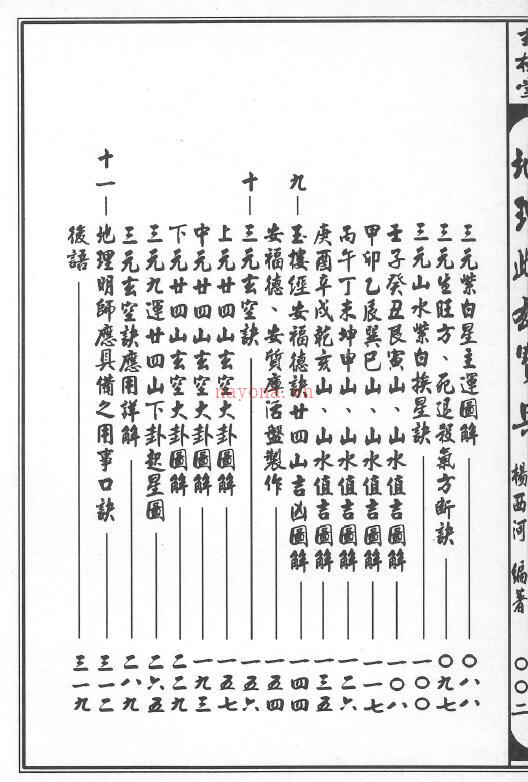 楊西河 編著
〇〇二
三元紫白星主運圖解——〇八八
三元生旺方、死退殺氣方斷訣——〇九七
三元山水紫白挨星訣——一〇〇
壬子癸丑艮寅山、山水值吉圖解——一〇八
甲卯乙辰巽巳山、山水值吉圖解——一一七
丙午丁未坤申山、山水值吉圖解——一二六
庚酉辛戌乾亥山、山水值吉圖解——一三五
九—玉樓經安福德訣廿四山吉凶圖解——一四四
安福德、安質庫活盤製作——一五四
十—三元玄空訣——一五六
上元廿四山玄空大卦圖解——一五七
中元廿四山玄空大卦圖解——一九三
下元廿四山玄空大卦圖解——二二九
三元九運廿四山下卦起星圖——二六五
三元玄空訣應用詳解——二八九
十一—地理明師應具備之用事口訣——三一二
後語——三一九
nayona.cn